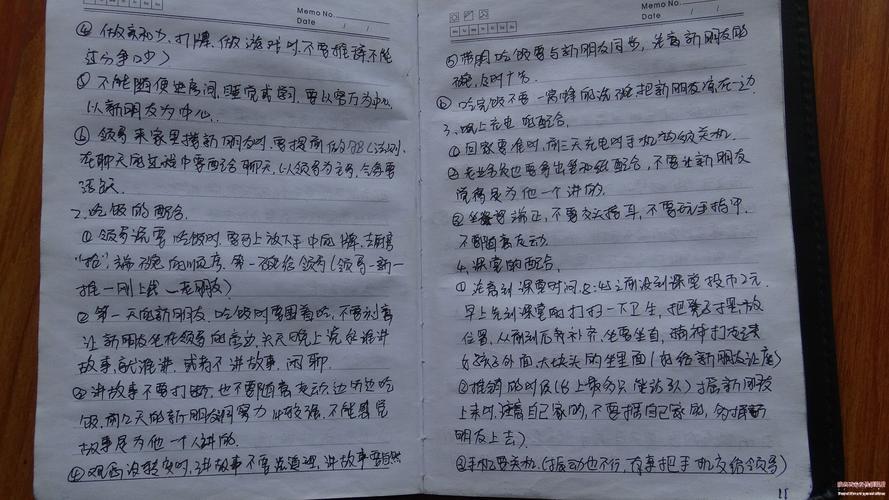 Memo No.
Date / /
④ 做亲和力,打牌、做游戏时,不要推诿不能
过分争吵)
⑤ 不能随便进房间,睡觉或学习,要以客厅为中心,
以新朋友为中心。
⑥ 领导来家里接新朋友时,要提前做BB(法则),
在聊天的过程中要配合聊天,(以领导为主导,气氛要
活跃。
2、吃饭的配合。
① 领导说要吃饭时,要马上放下手中的牌,
"抢"端碗的顺序,第一碗给领导(领导一新一
推一刚上线一老朋友)
② 第一天的新朋友,吃饭时要围着吃,不要刻意
让新朋友坐在领导的旁边,头天晚上说好谁讲
故事,就谁讲,或者不讲故事,闲聊。
③ 讲故事不要打断,也不要随意走动,边听边吃
饭,前几天的新朋友洞察力比较强,不能感觉
故事是为他一个人讲的。
④ 观念没转变时,讲故事不要说道理,讲故事要自然
Memo No.
Date / /
⑤ 带朋吃饭要与新朋友同步,先离新朋友的
碗,及时
⑥ 吃完饭不要一窝蜂的洗碗,把新朋友凉在一边
3、晚上充电的配合。
① 回家要准时,前三天充电时手机必须关机。
② 老业务员也要多出答和给配合,不要让新朋友
觉得是为他一个讲的。
③ 坐姿端正,不要交头接耳,不要玩手指甲,
不要随意走动。
4、课堂的配合。
① 注意到课堂时间8:45之前没到课堂投币2元
早上先到课堂的打扫一下卫生,把凳子摆放
位置,从前到后, 补齐,坐要坐直,精神打起来
好孩子外面,大块头的坐里面(好给新朋友让座)
② 推销的时候(台上帮分只
上来时,注意自己家的,不要握自己家的,
朋友上去)
③ 手机要关机(振动也不行,有事把手机交给领导)
11